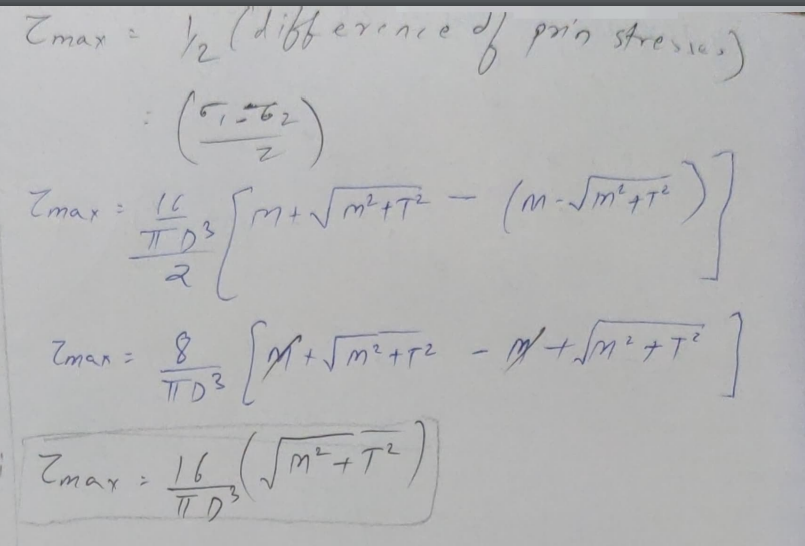 τmax = 1/2 (difference of prin stresses)
= (σ1 - σ2 / 2)
τmax = 16/πD³ / 2 [m + √m²+T² - (m - √m²+T²)]
τmax = 8/πD³ [m + √m²+T² - m + √m²+T²]
τmax = 16/πD³ (√m²+T²)